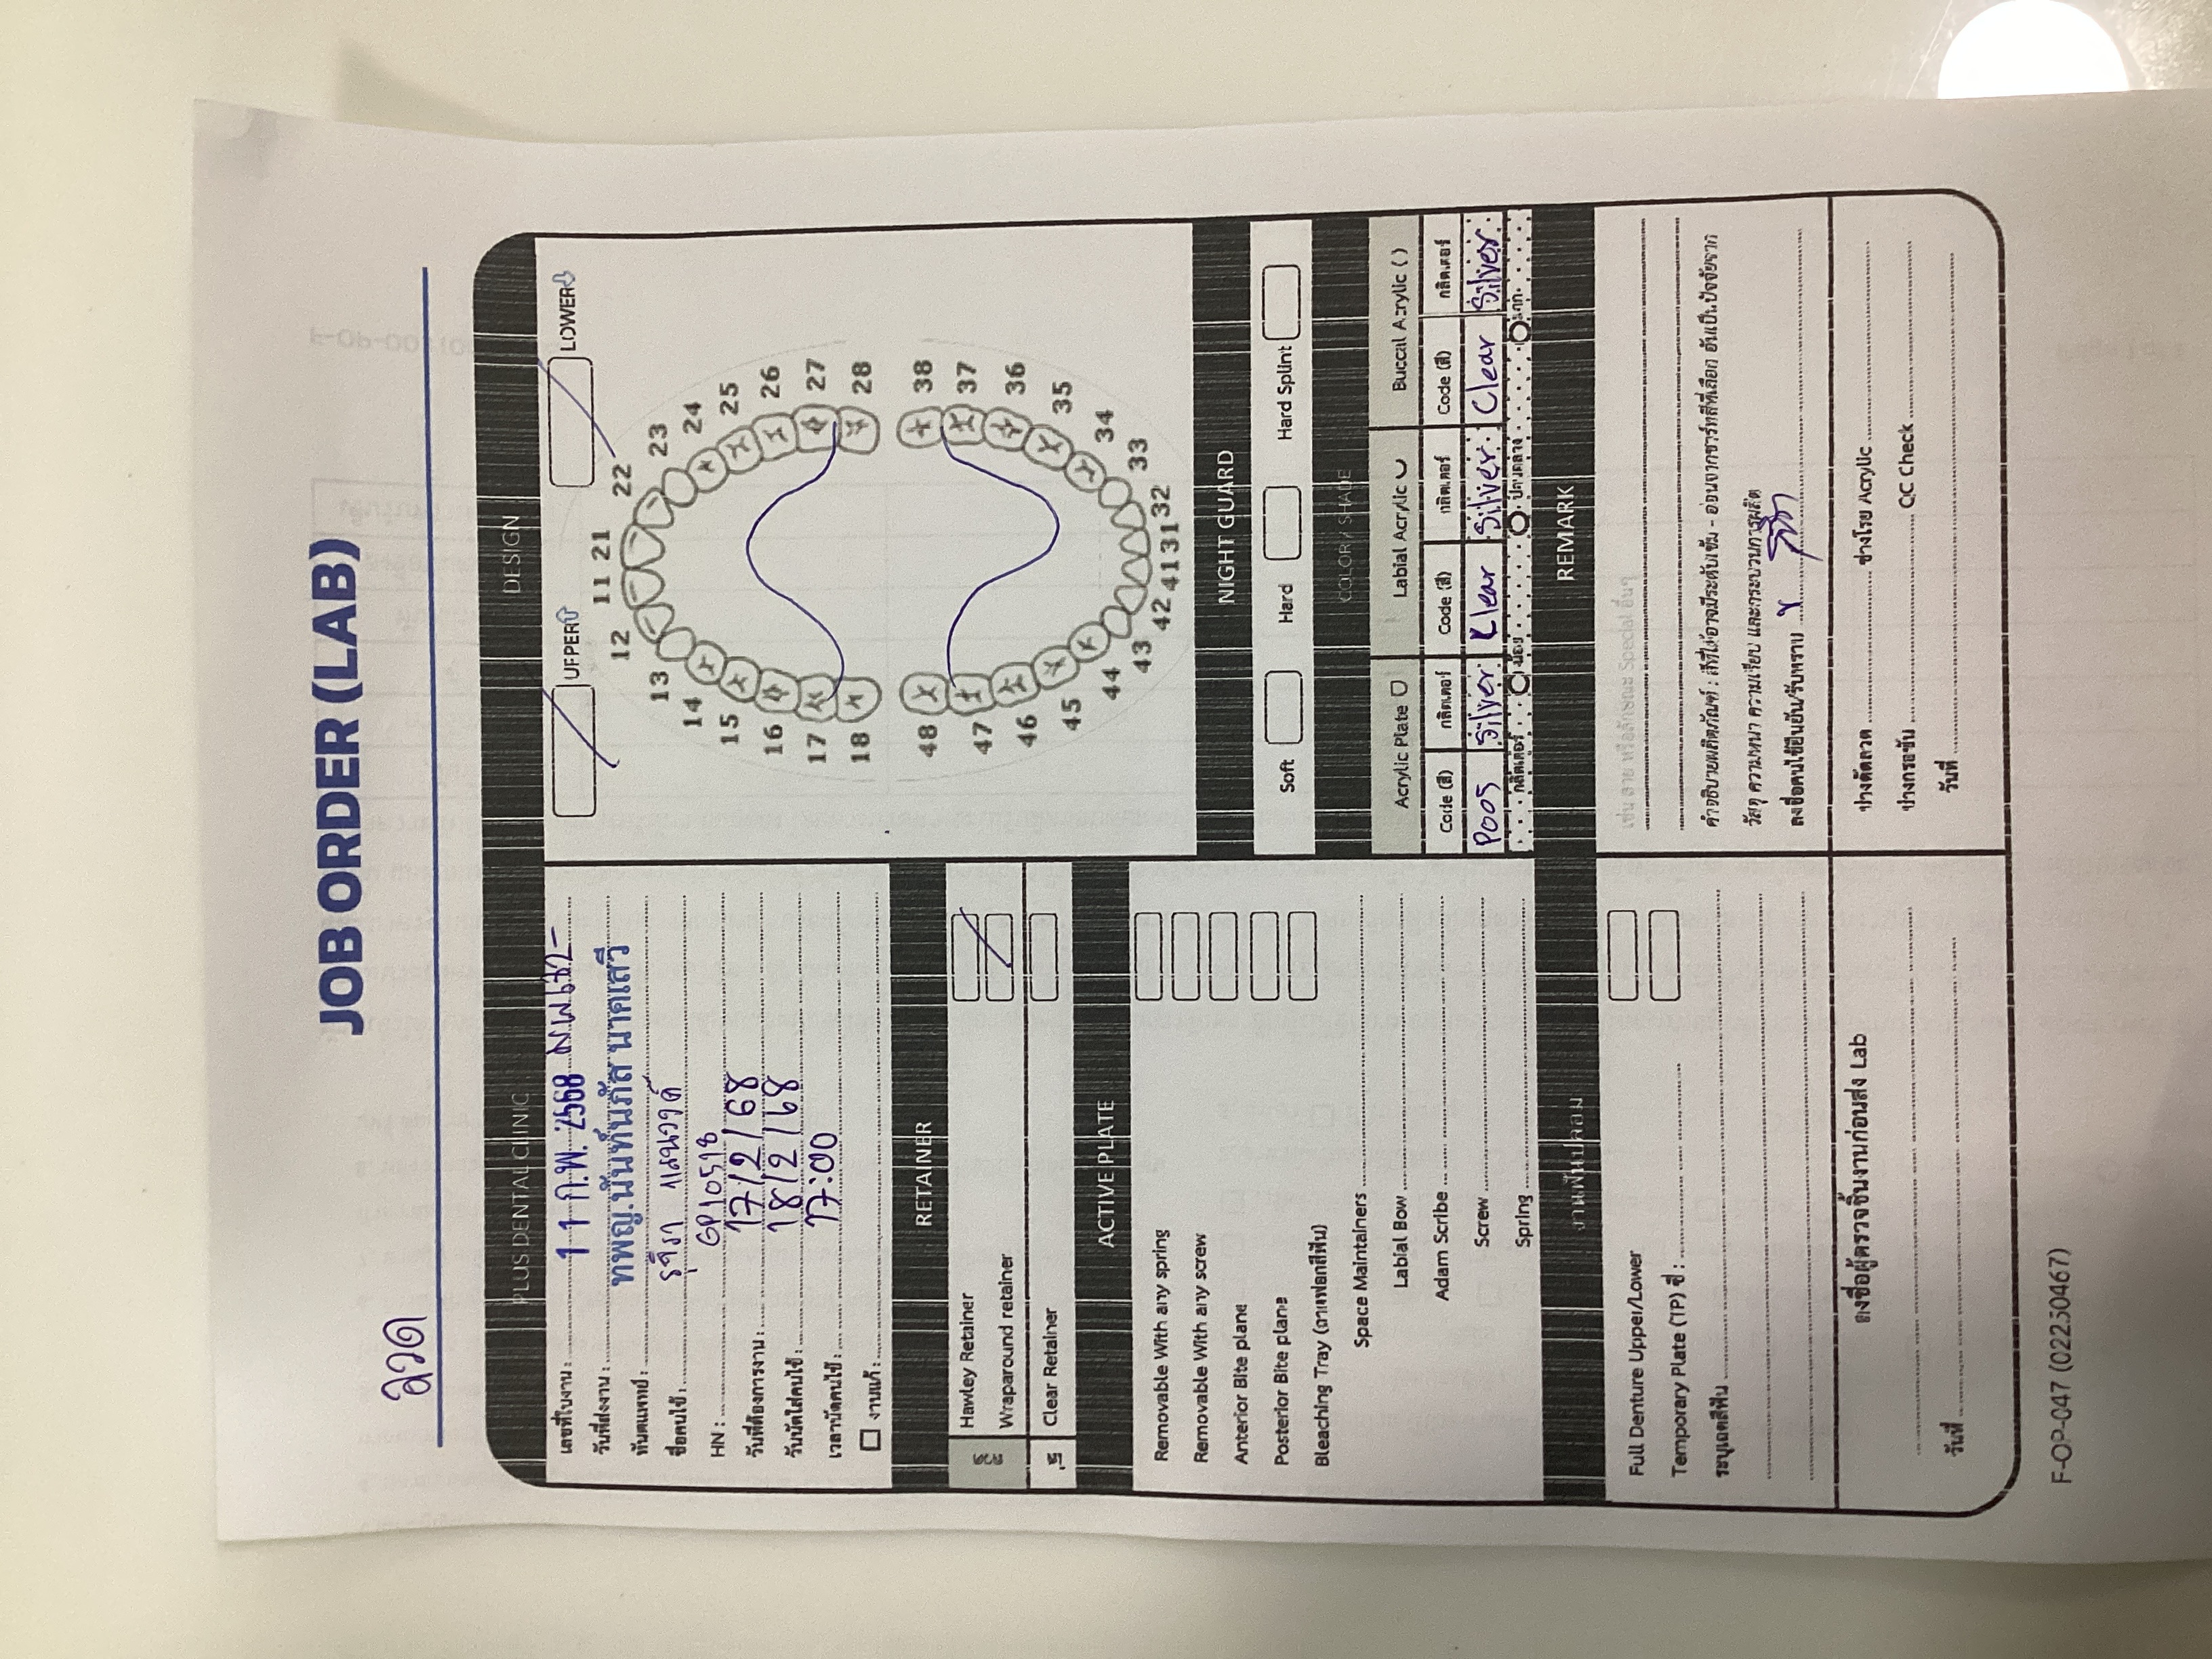 JOB ORDER (LAB)
ลวด
PLUS DENTAL CLINIC
เลขที่ใบงาน :
วันที่ส่งงาน : 11 ก.พ. 2568
ทันตแพทย์ : ทพญ.นันท์นภัส นาคเสวี
ชื่อคนไข้ : รุจิรา แสนวงค์
HN : GP10518
วันที่ต้องการงาน : 17/2/68
วันนัดใส่คนไข้ : 18/2/68
เวลานัดคนไข้ : 17:00
งานแก้ :
RETAINER
ลวด
Hawley Retainer
Wraparound retainer
ใส
Clear Retainer
ACTIVE PLATE
Removable With any spring
Removable With any screw
Anterior Bite plane
Posterior Bite plane
Bleaching Tray (ถาดฟอกสีฟัน)
Space Maintainers
Labial Bow
Adam Scribe
Screw
Spring
งานฟันปลอม
Full Denture Upper/Lower
Temporary Plate (TP) ซี่ :
ระบุเฉดสีฟัน
ลงชื่อผู้ตรวจชิ้นงานก่อนส่ง Lab
วันที่
DESIGN
UPPER LOWER
11 21
12 22
13 23
14 24
15 25
16 26
17 27
18 28
48 38
47 37
46 36
45 35
44 34
43 33
42 41 31 32
NIGHT GUARD
Soft Hard Hard Splint
COLOR / SHADE
Acrylic Plate Labial Acrylic Buccal Acrylic ( )
Code (สี) กลิตเตอร์ Code (สี) กลิตเตอร์ Code (สี) กลิตเตอร์
P005 Silver Clear Silver Clear Silver
กลิตเตอร์ น้อย ปานกลาง มาก
REMARK
เช่น ลาย หรือลักษณะ Special อื่นๆ
คำอธิบายผลิตภัณฑ์ : สีที่ได้อาจมีระดับเข้ม - อ่อนจากชาร์ทสีที่เลือก อันเป็นปัจจัยจาก
วัสดุ ความหนา ความเรียบ และกระบวนการผลิต
ลงชื่อคนไข้ยืนยัน/รับทราบ
ช่างดัดลวด ช่างโรย Acrylic
ช่างกรอขัน QC Check
วันที่
F-OP-047 (02250467)